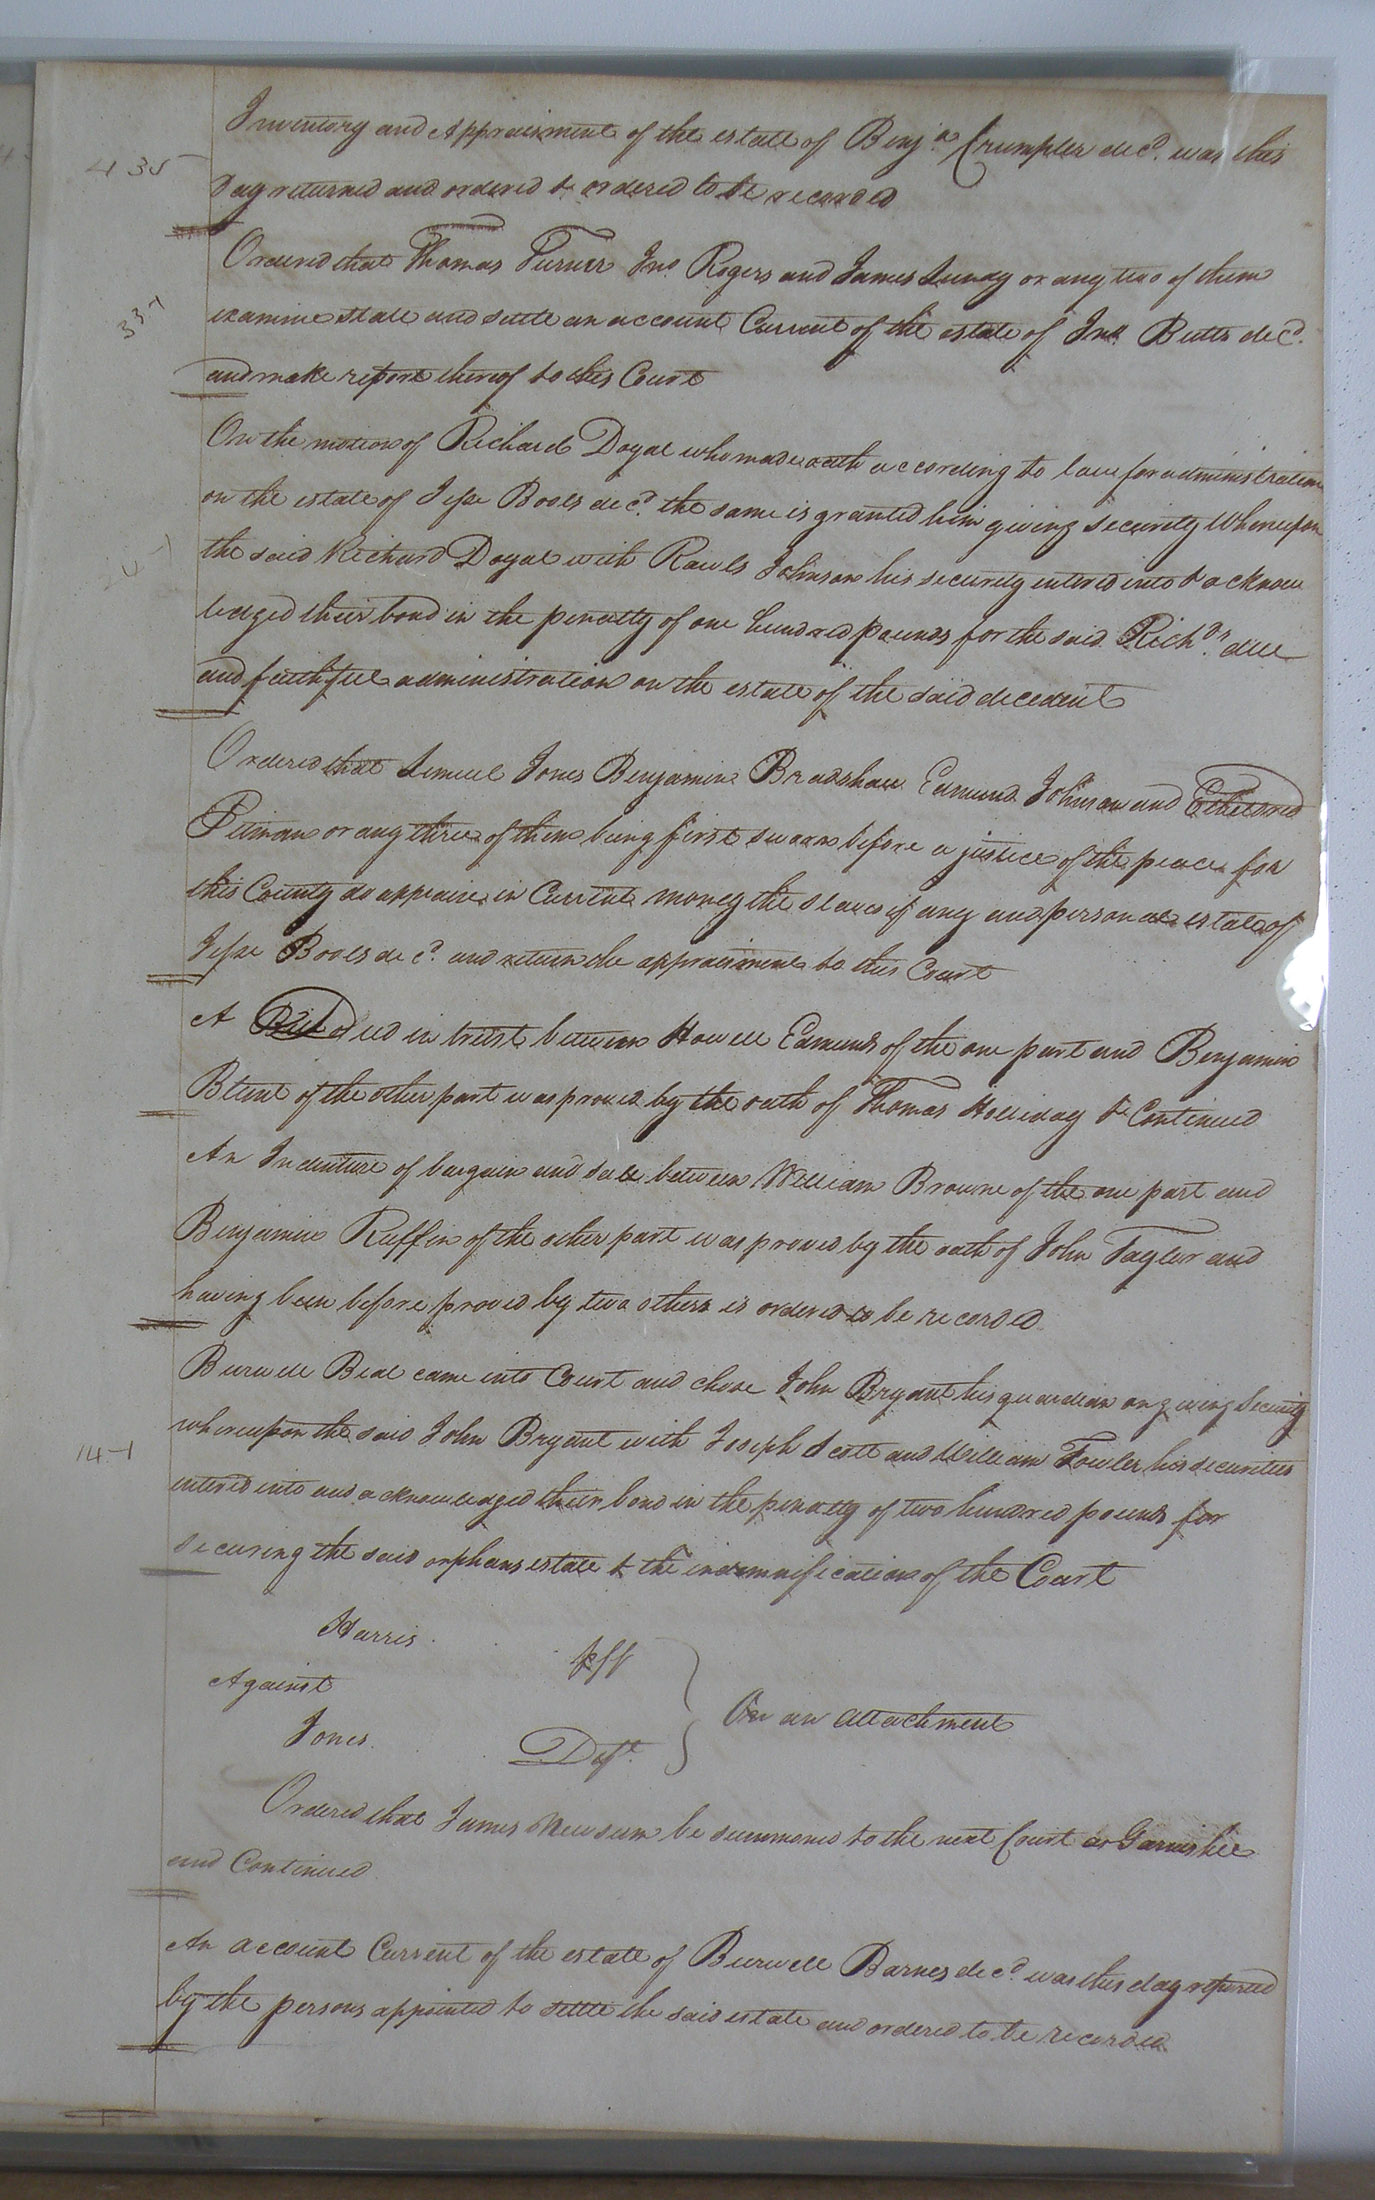 Inventory and Appraisment of the estate of Benja. Crumpler decd. was this
435
Day returned and ordered & ordered to be recorded
Ordered that Thomas Turner Jno. Rogers and James Lundy or any two of them
337
examine state and settle an account Current of the estate of Jno. Butts decd.
and make report thereof to this Court
On the motion of Richard Doyal who made oath according to law for administration
on the estate of Jesse Bools decd. the same is granted him giving security Whereupon
the said Richard Doyal with Rawls Johnson his security entered into & acknow
ledged their bond in the penalty of one hundred pounds for the said Richds. due
and faithful administration on the estate of the said decedent
Ordered that Lemuel Jones Benjamin Bradshaw Edmund Johnson and Etheldred
Pitman or any three of them being first sworn before a justice of the peace for
this County do appraise in Current money the slaves if any and personal estate of
Jesse Bools decd. and return the appraisment to this Court
A deed in trust between Howell Edmunds of the one part and Benjamin
Blunt of the other part was proved by the oath of Thomas Holliday & Continued
An Indenture of bargain and sale between William Browne of the one part and
Benjamin Ruffin of the other part was proved by the oath of John Taylor and
having been before proved by two others is ordered to be recorded
Burwell Beal came into Court and chose John Bryant his guardian on giving Security
whereupon the said John Bryant with Joseph Scott and William Fowler his securities
14-1
entered into and acknowledged their bond in the penalty of two hundred pounds for
securing the said orphans estate & the indemnification of the Court
Harris plff
Against
On an attachment
Jones Deft.
Ordered that James Newsum be summoned to the next Court as Garnishee
and Continued
An account Current of the estate of Burwell Barnes decd. was this day returned
by the persons appointed to settle the said estate and ordered to be recorded